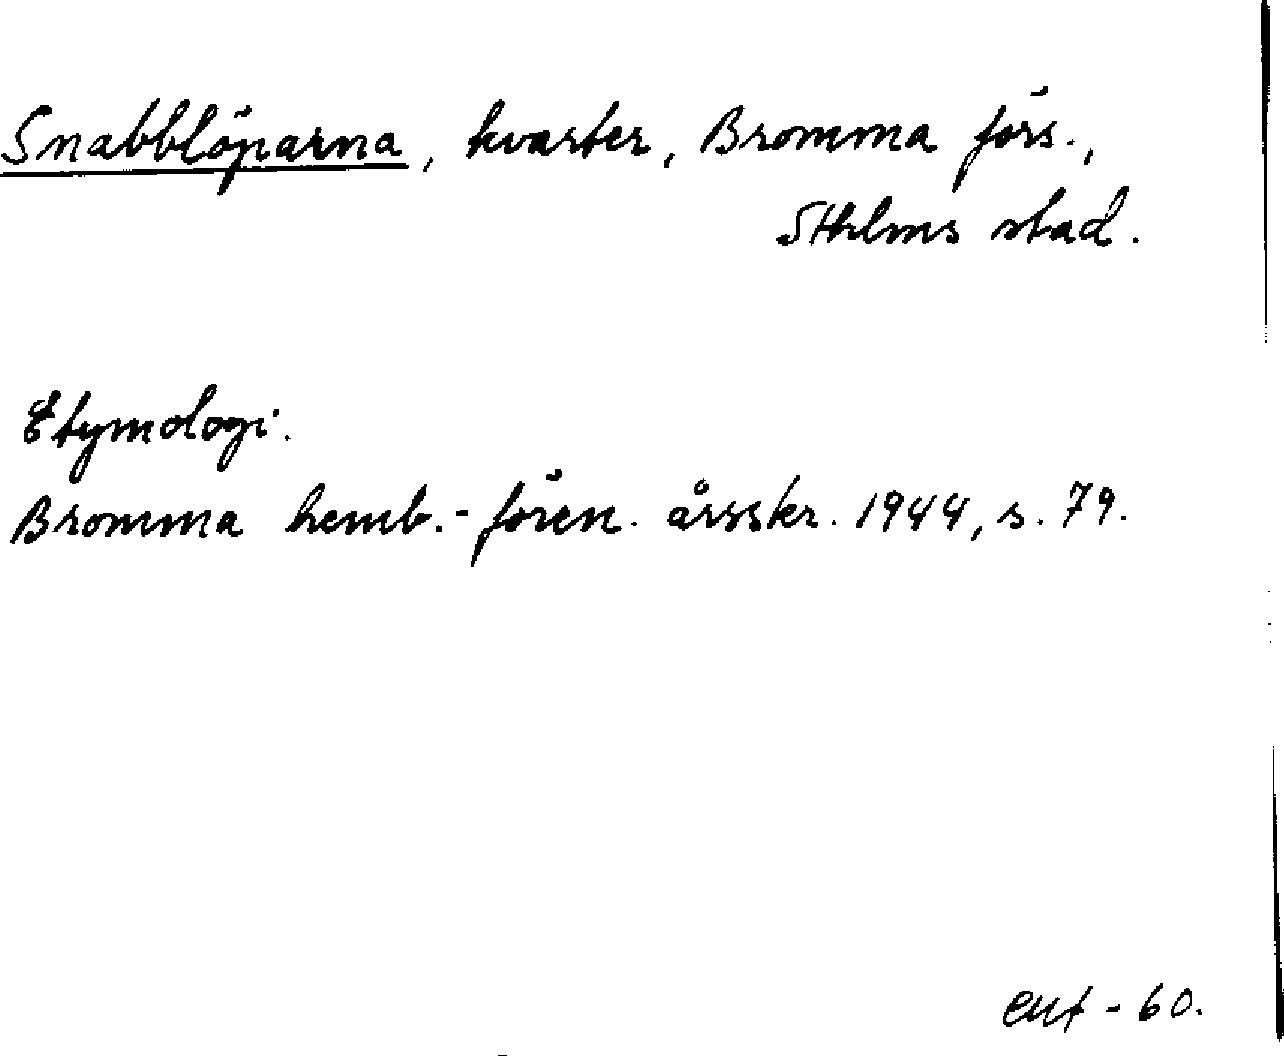 Snabblöparna, kvarter, Bromma förs.,
Sthlms stad.
Etymologi.
Bromma hemb.-fören. årsskr. 1944, s. 79.
-60.